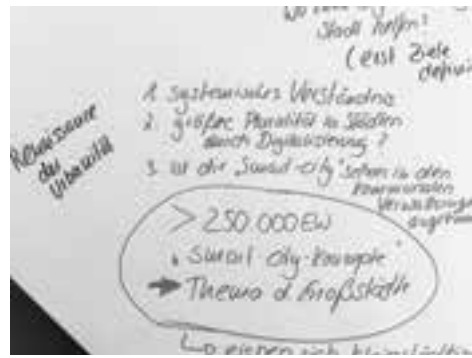 Stadt helfen?
(erst Ziele
Renaissance
der
Urbanität
1. systemisches Verständnis
2. größere Pluralität in Städten
durch Digitalisierung?
3. ist die „Smart-city“ schon in den
kommunalen
Verwaltungen
> 250.000 EW
Smart-city-Konzepte
→ Thema d. Großstädte